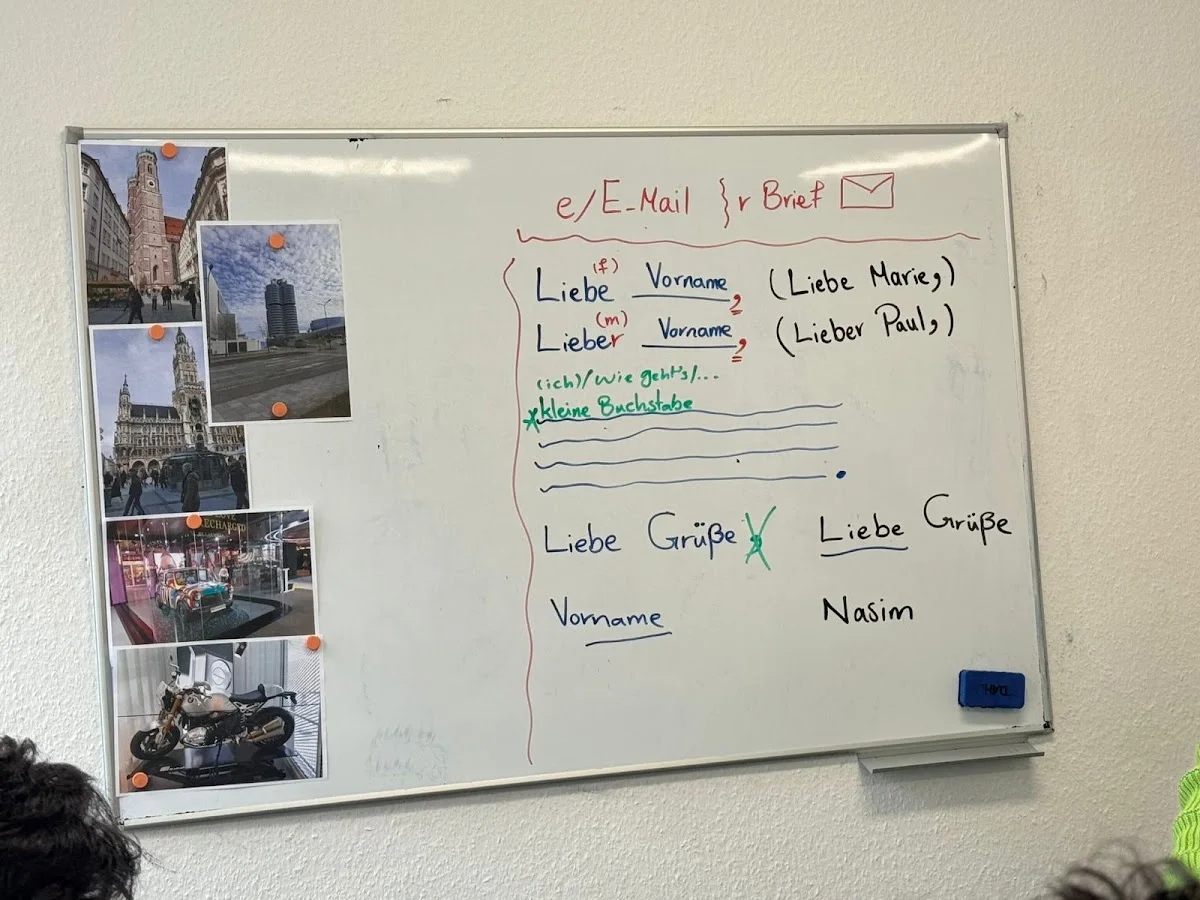 e/E-Mail } r Brief
(f)
Liebe Vorname, (Liebe Marie,)
(m)
Lieber Vorname, (Lieber Paul,)
(ich)/wie geht's/...
*kleine Buchstabe
Liebe Grüße, Liebe Grüße
Vorname Nasim
ECHARGED